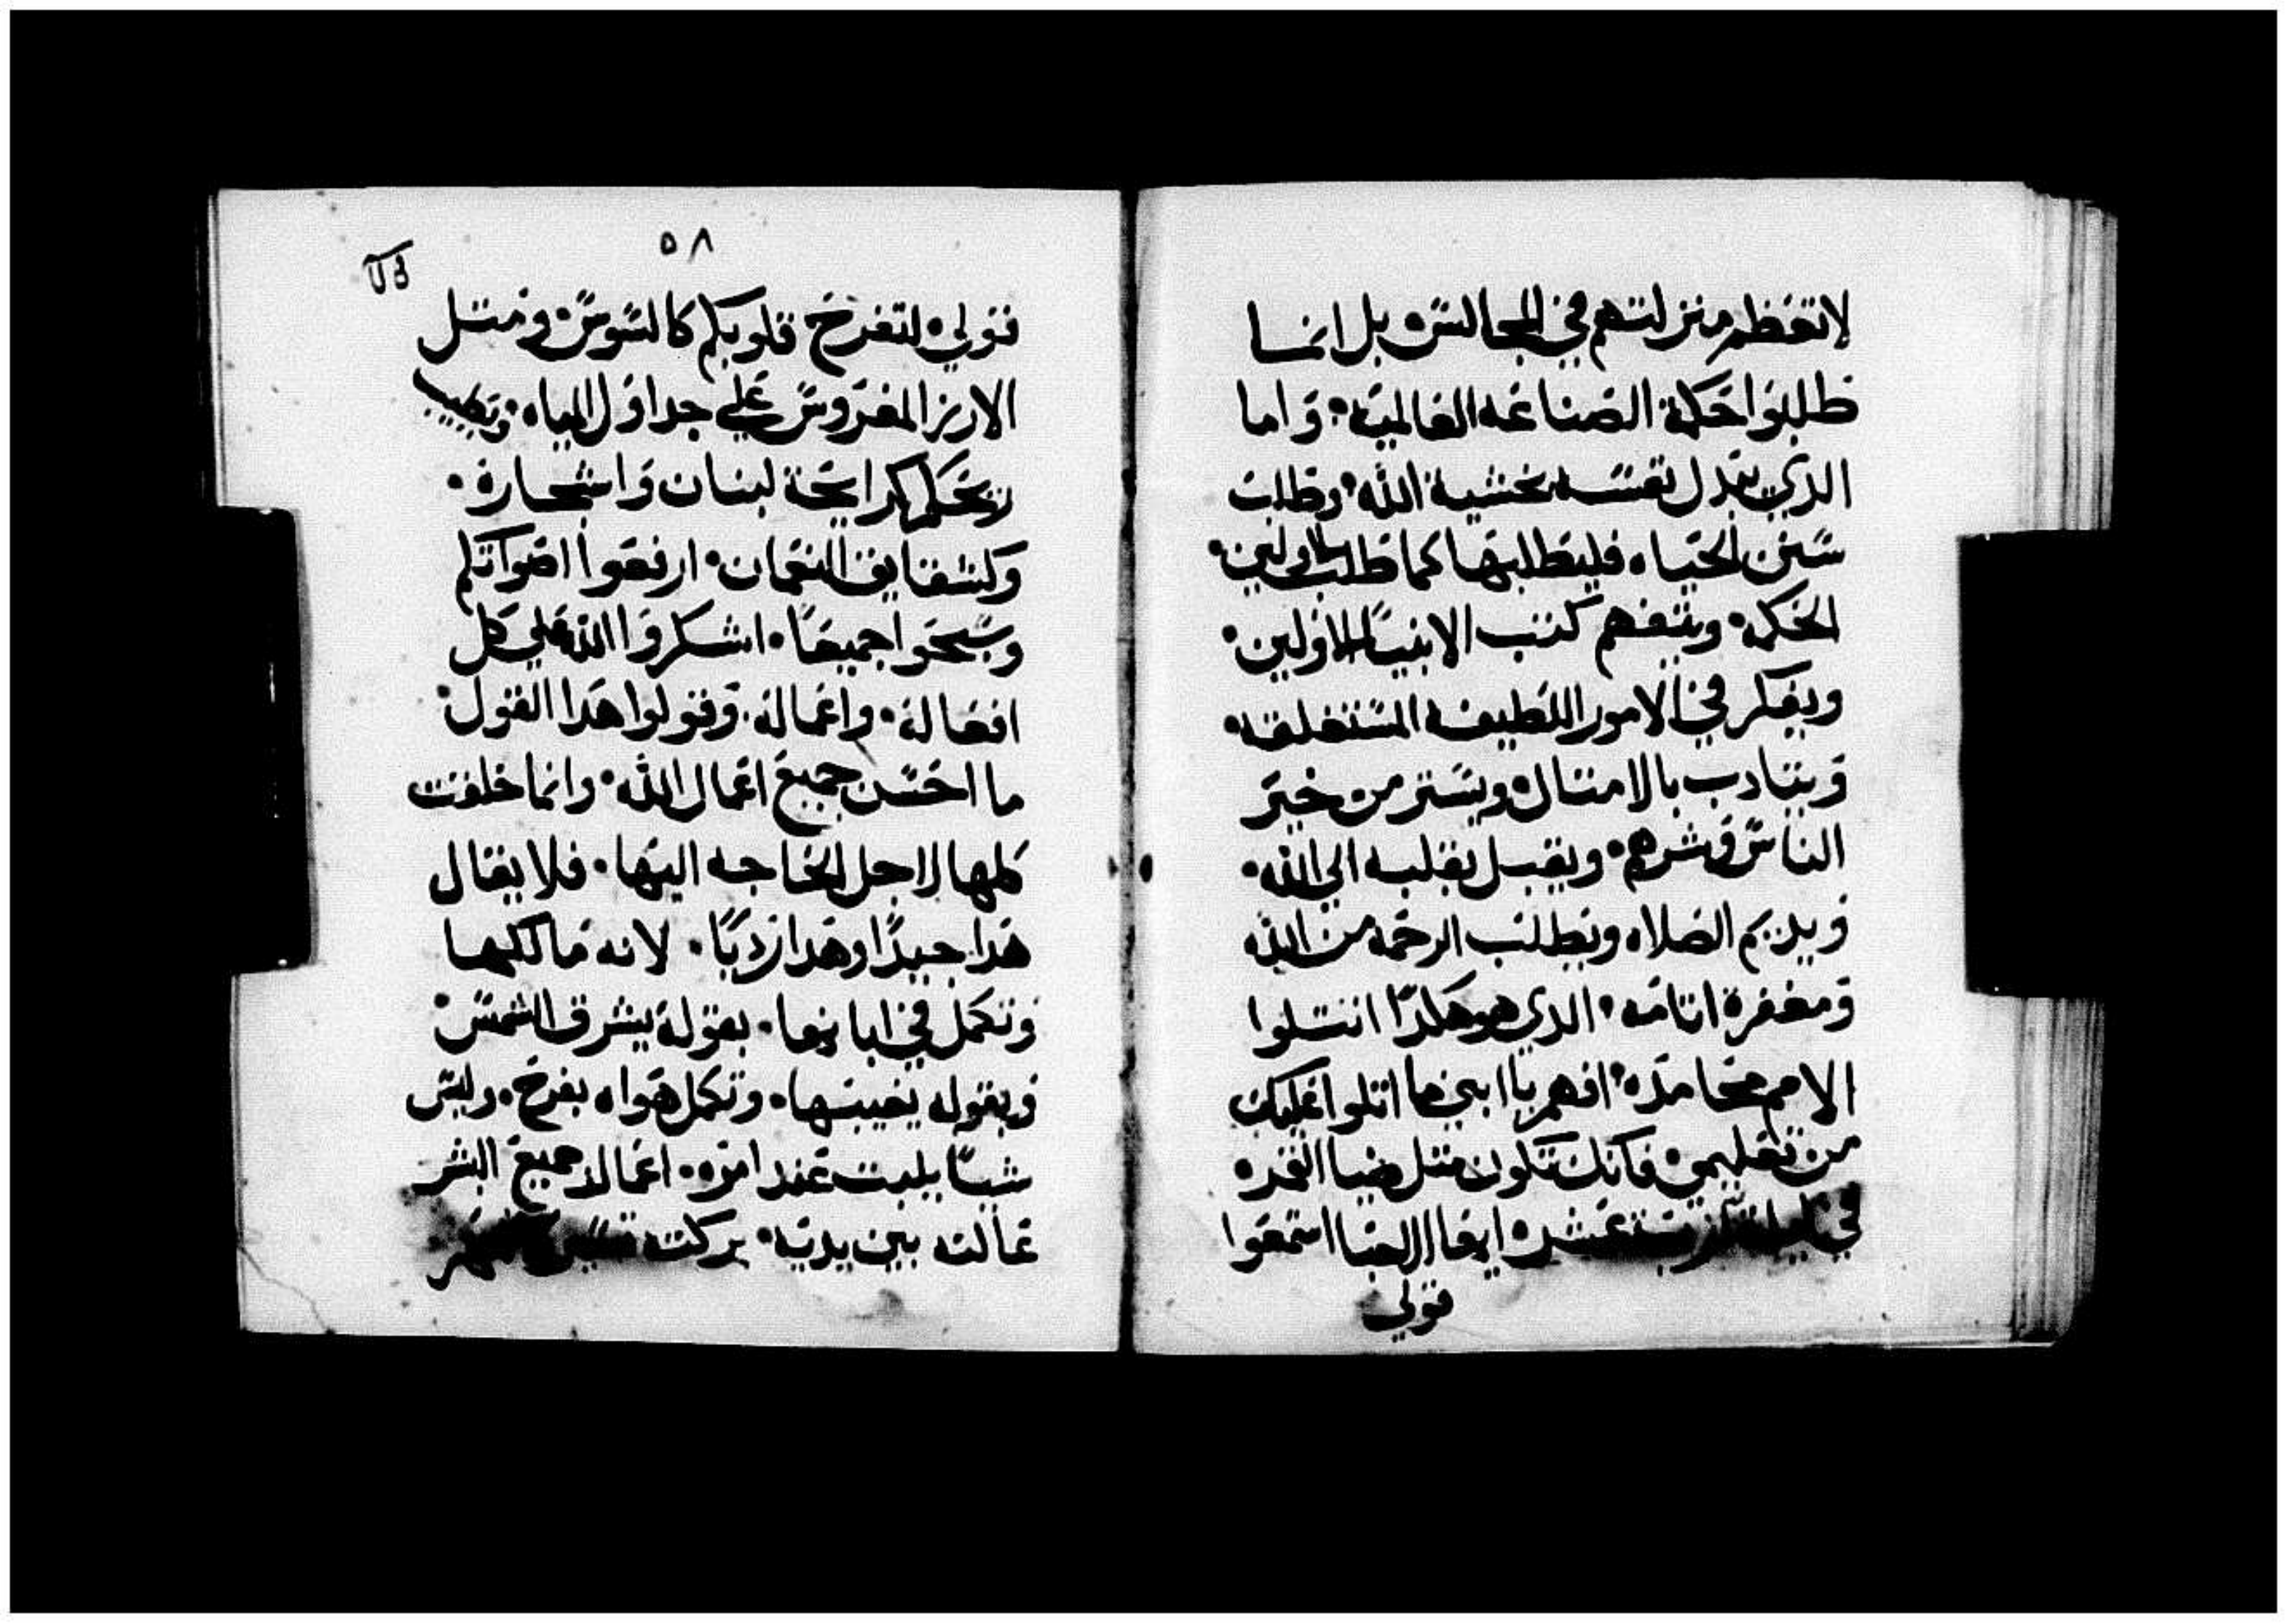 لاتعظم منزلتهم في المجالس بل انما
طلبوا حكمة الصناعه العالميه وَاما
الذي يبدل نفسه بخشية الله وطلب
سنن الحياه فليطلبها كما طلب الاولين
الحكمه ويتفهم كتب الانبياء الاولين
ويفكر في الامور اللطيفه المستغلقه
وَيتادب بالامتال ويستر من خير
الناس وَشرهم ويقبل بقلبه الي الله
وَيديم الصلاه ويطلب الرحمه من الله
وَمغفرة اتامه الذي هو هكذا انتسلوا
الامم محامده افهم يا ابني ما اتلوا عليك
من تعليمي فانك تكون متل ضيا القمر
في ليلة عشر ايها الاحبا استمعوا
قولي
٥٨
قولي لتفرح قلوبكم كالسوس ومتل
الارز المغروس علي جداول المياه وتطيب
ريحكم كرايحة لبنان وَاشجاره
وَكشقايق النعمان ارفعوا اصواتكم
وسبحوا جميعًا اشكروا الله علي كل
افعاله واعماله وَقولوا هذا القول
ما احسن جميع اعمال الله وانما خلقت
كلها لاجل الحاجه اليها فلا يقال
هذا جيدًا وهذا رديًا لانه مالكها
وتكمل في ابانها بقوله يشرق الشمس
وَبقوله يغيبها وتكمل هواه بفرح وليس
شيًا يلبت عند امره اعمال جميع البشر
عالته بين يديه بركته